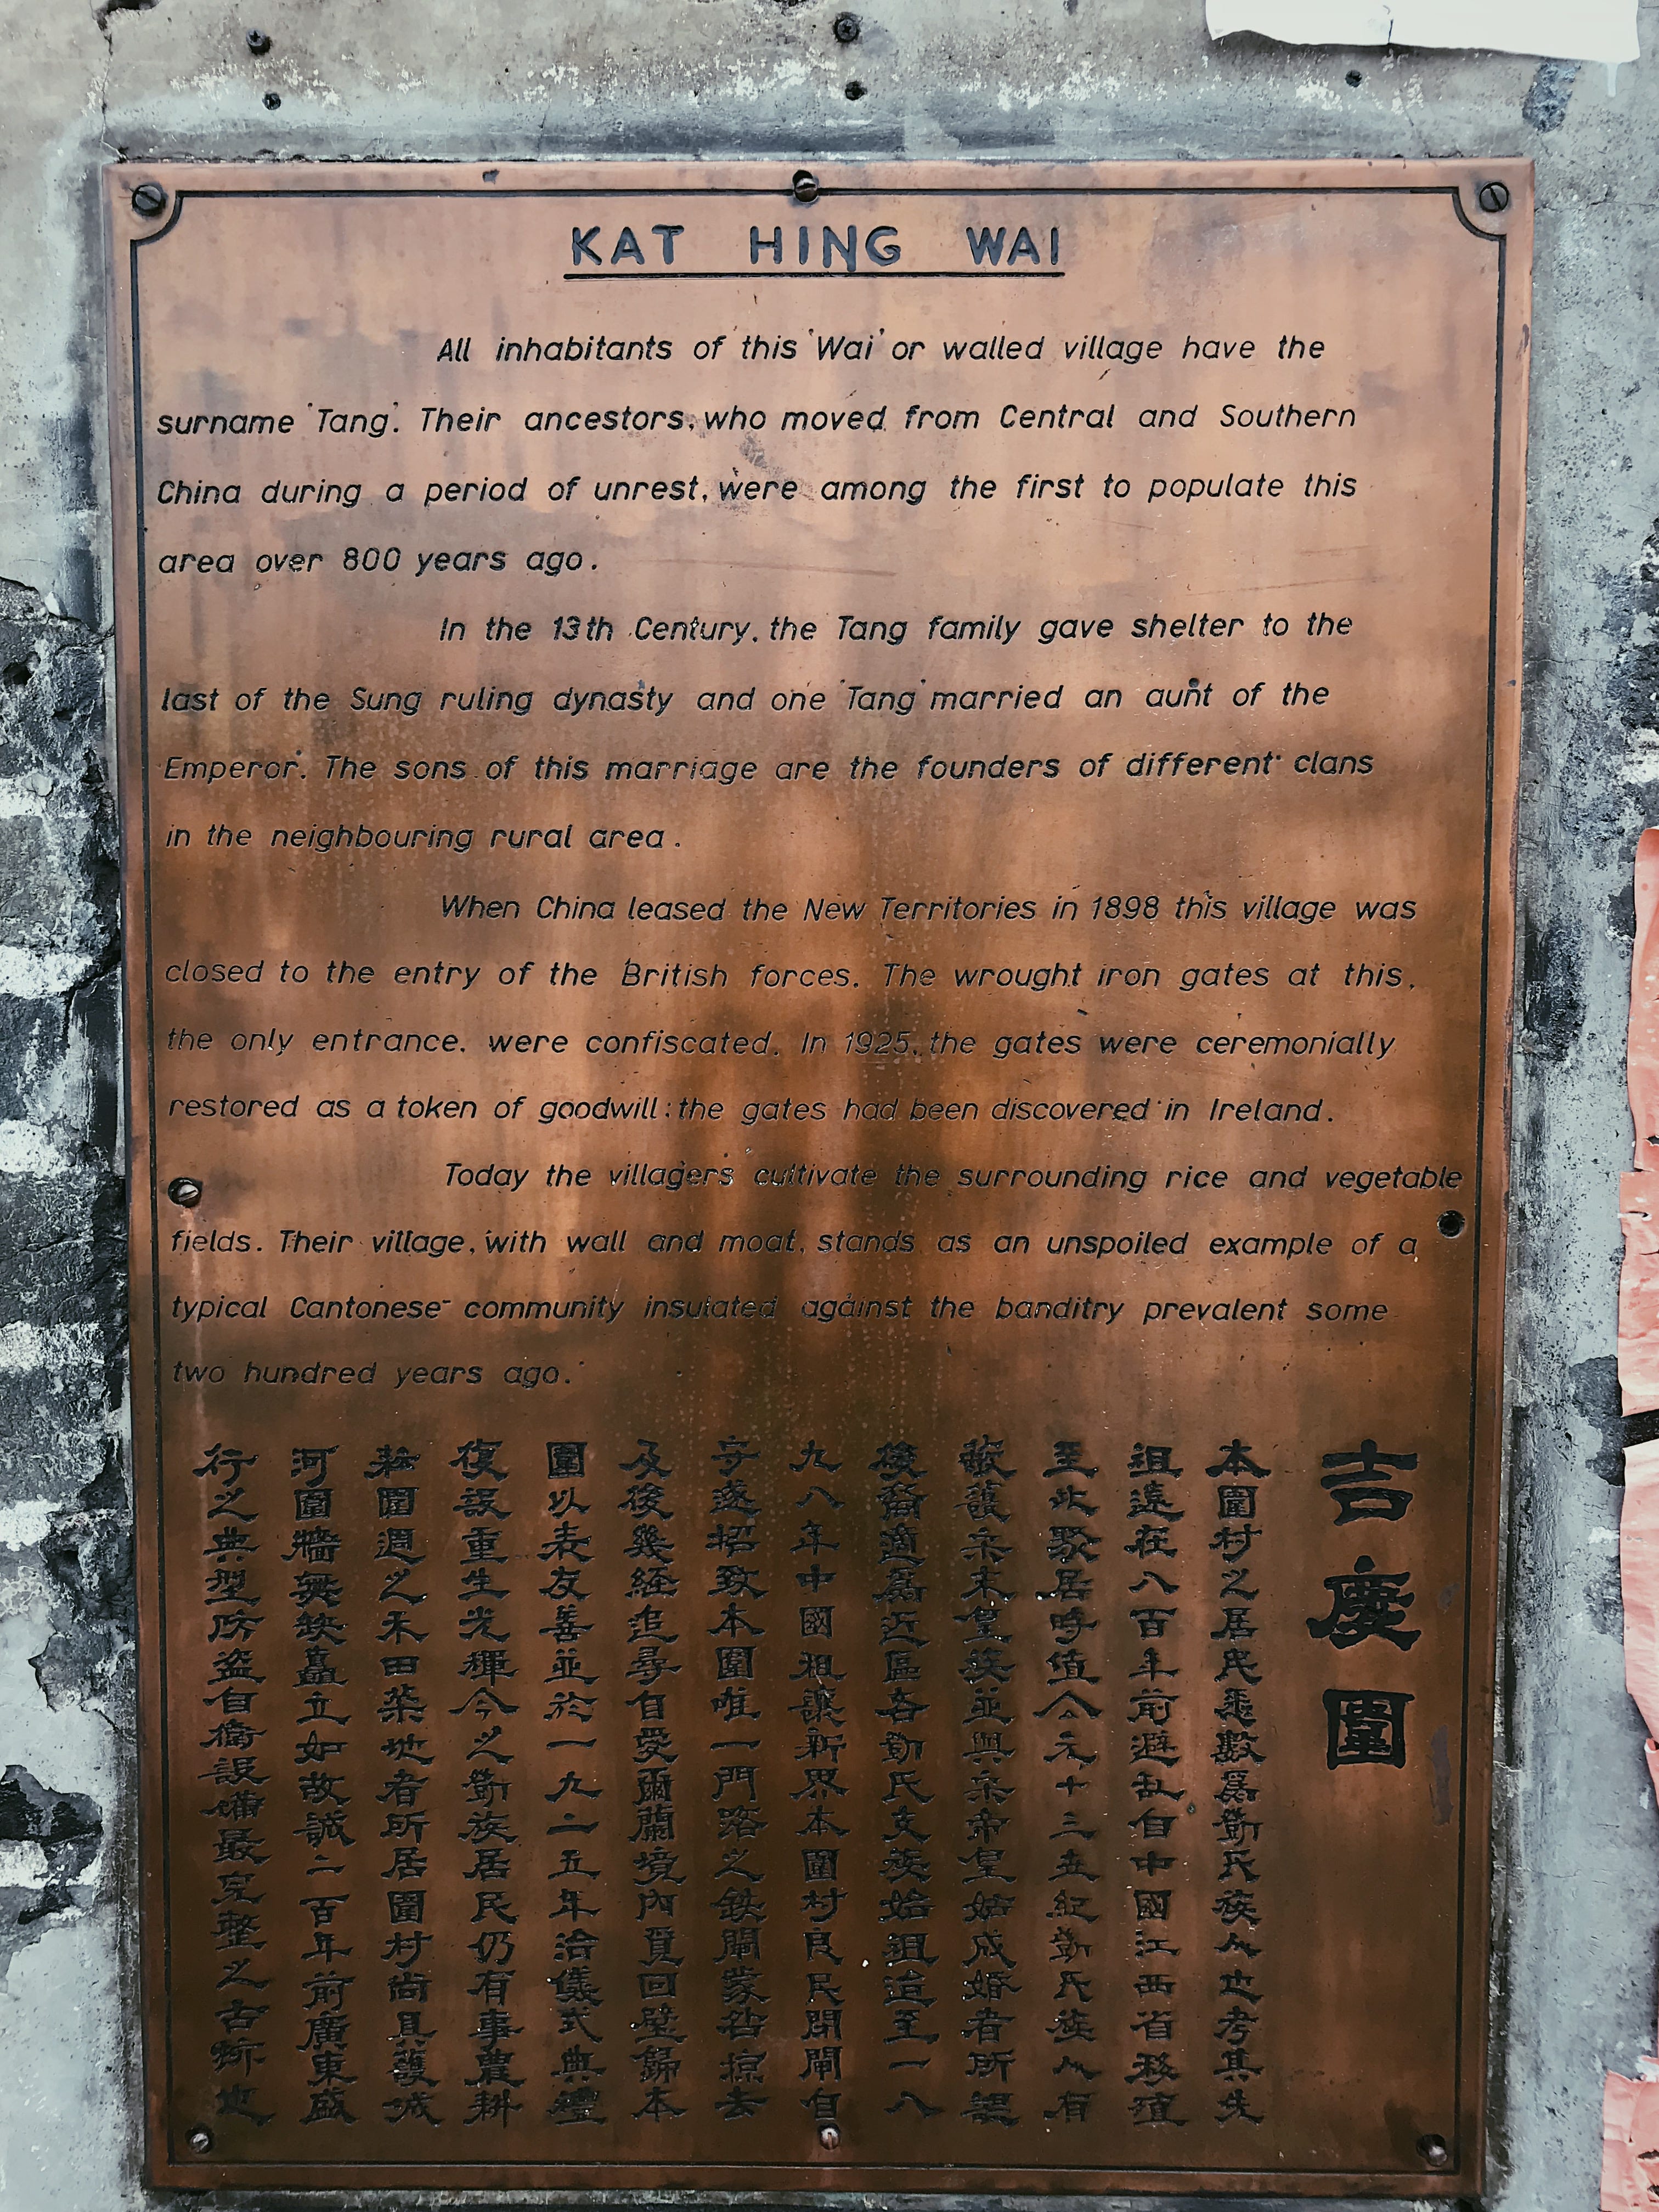 KAT HING WAI
All inhabitants of this 'Wai' or walled village have the
surname 'Tang'. Their ancestors, who moved from Central and Southern
China during a period of unrest, were among the first to populate this
area over 800 years ago.
In the 13th Century, the Tang family gave shelter to the
last of the Sung ruling dynasty and one 'Tang' married an aunt of the
Emperor. The sons of this marriage are the founders of different clans
in the neighbouring rural area.
When China leased the New Territories in 1898 this village was
closed to the entry of the British forces. The wrought iron gates at this,
the only entrance, were confiscated. In 1925, the gates were ceremonially
restored as a token of goodwill: the gates had been discovered in Ireland.
Today the villagers cultivate the surrounding rice and vegetable
fields. Their village, with wall and moat, stands as an unspoiled example of a
typical Cantonese community insulated against the banditry prevalent some
two hundred years ago.
吉慶圍
本圍村之居民悉數爲鄧氏族人也考其先
祖遠在八百年前避乱自中國江西省移殖
至此聚居時值公元十三世紀鄧氏族人有
護宋末皇族並與宋帝皇姑成婚者所誕
後裔適爲近區各鄧氏支族始祖迨至一八
九八年中國租讓新界本圍村良民閉閘自
守遂招致本圍唯一門路之鉄閘蒙掠去
及後幾經追尋自愛爾蘭境內覓回璧歸本
圍以表友善並於一九二五年洽儀式典禮
復設重生光輝今之鄧族居民仍有事農耕
耘圍週之禾田菜地者所居圍村尚具護城
河圍牆無缺矗立如故誠二百年前廣東盛
行之典型防盜自衛設備最完整之古蹟也